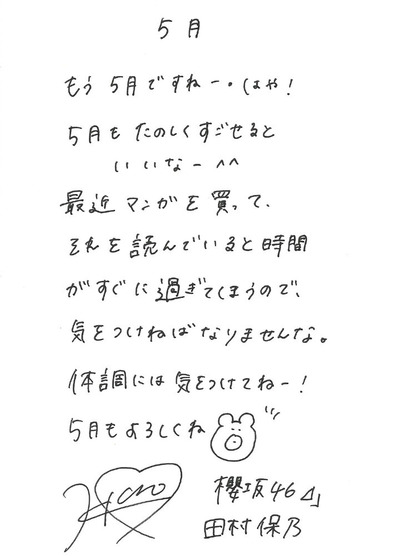 5月
もう5月ですねー。はや!
5月もたのしくすごせると
いいなー^^
最近マンガを買って、
それを読んでいると時間
がすぐに過ぎてしまうので、
気をつけねばなりませんな。
体調には気をつけてねー!
5月もよろしくね
櫻坂46⊿」
田村保乃